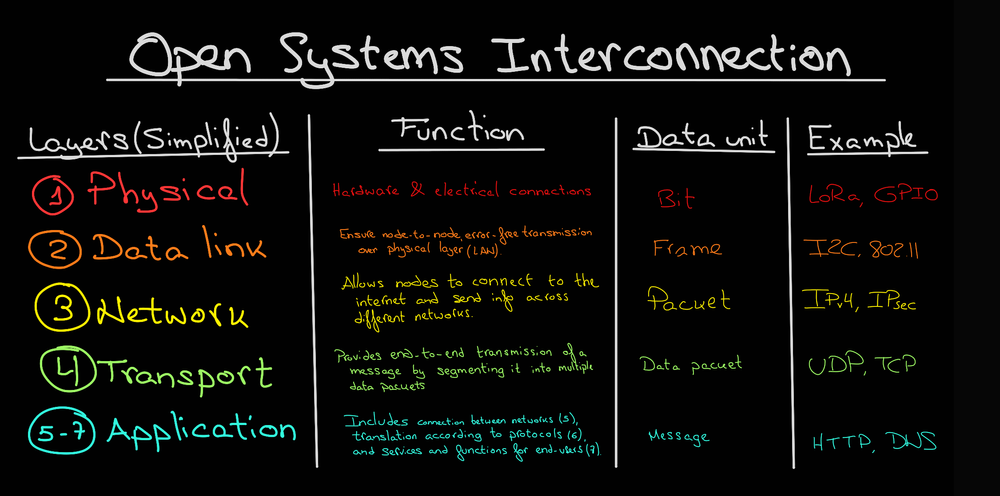 Open Systems Interconnection
Layers (Simplified)
Function
Data unit
Example
1 Physical
Hardware & electrical connections
Bit
LoRa, GPIO
2 Data link
Ensure node-to-node, error-free transmission
over physical layer (LAN).
Frame
I2C, 802.11
3 Network
Allows nodes to connect to the
internet and send info across
different networks.
Packet
IPv4, IPsec
4 Transport
Provides end-to-end transmission of a
message by segmenting it into multiple
data packets
Data packet
UDP, TCP
5-7 Application
Includes connection between networks (5),
translation according to protocols (6),
and services and functions for end-users (7).
Message
HTTP, DNS